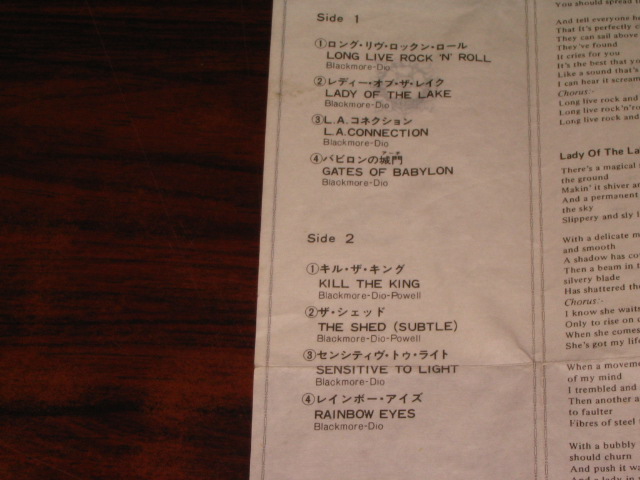 Side 1
①ロング・リヴ・ロックン・ロール
LONG LIVE ROCK 'N' ROLL
Blackmore-Dio
②レディー・オブ・ザ・レイク
LADY OF THE LAKE
Blackmore-Dio
③L.A.コネクション
L.A.CONNECTION
Blackmore-Dio
④バビロンの城門
GATES OF BABYLON
Blackmore-Dio
Side 2
①キル・ザ・キング
KILL THE KING
Blackmore-Dio-Powell
②ザ・シェッド
THE SHED (SUBTLE)
Blackmore-Dio-Powell
③センシティヴ・トゥ・ライト
SENSITIVE TO LIGHT
Blackmore-Dio
④レインボー・アイズ
RAINBOW EYES
Blackmore-Dio
You should spread
And tell everyone
That It's perfectly
They can sail above
They've found
It cries for you
It's the best that
Like a sound that's
I can hear it scream
Chorus:-
Long live rock and
Long live rock'n'
Long live rock and
Lady Of The
There's a magical
the ground
Makin' it shiver
And a permanent
the sky
Slippery and sly
With a delicate
and smooth
A shadow has
Then a beam in
silvery blade
Has shattered
Chorus:-
I know she waits
Only to rise on
When she comes
She's got my
When a
of my mind
I trembled and
Then another
to faulter
Fibres of steel
With a bubbly
should churn
And push it